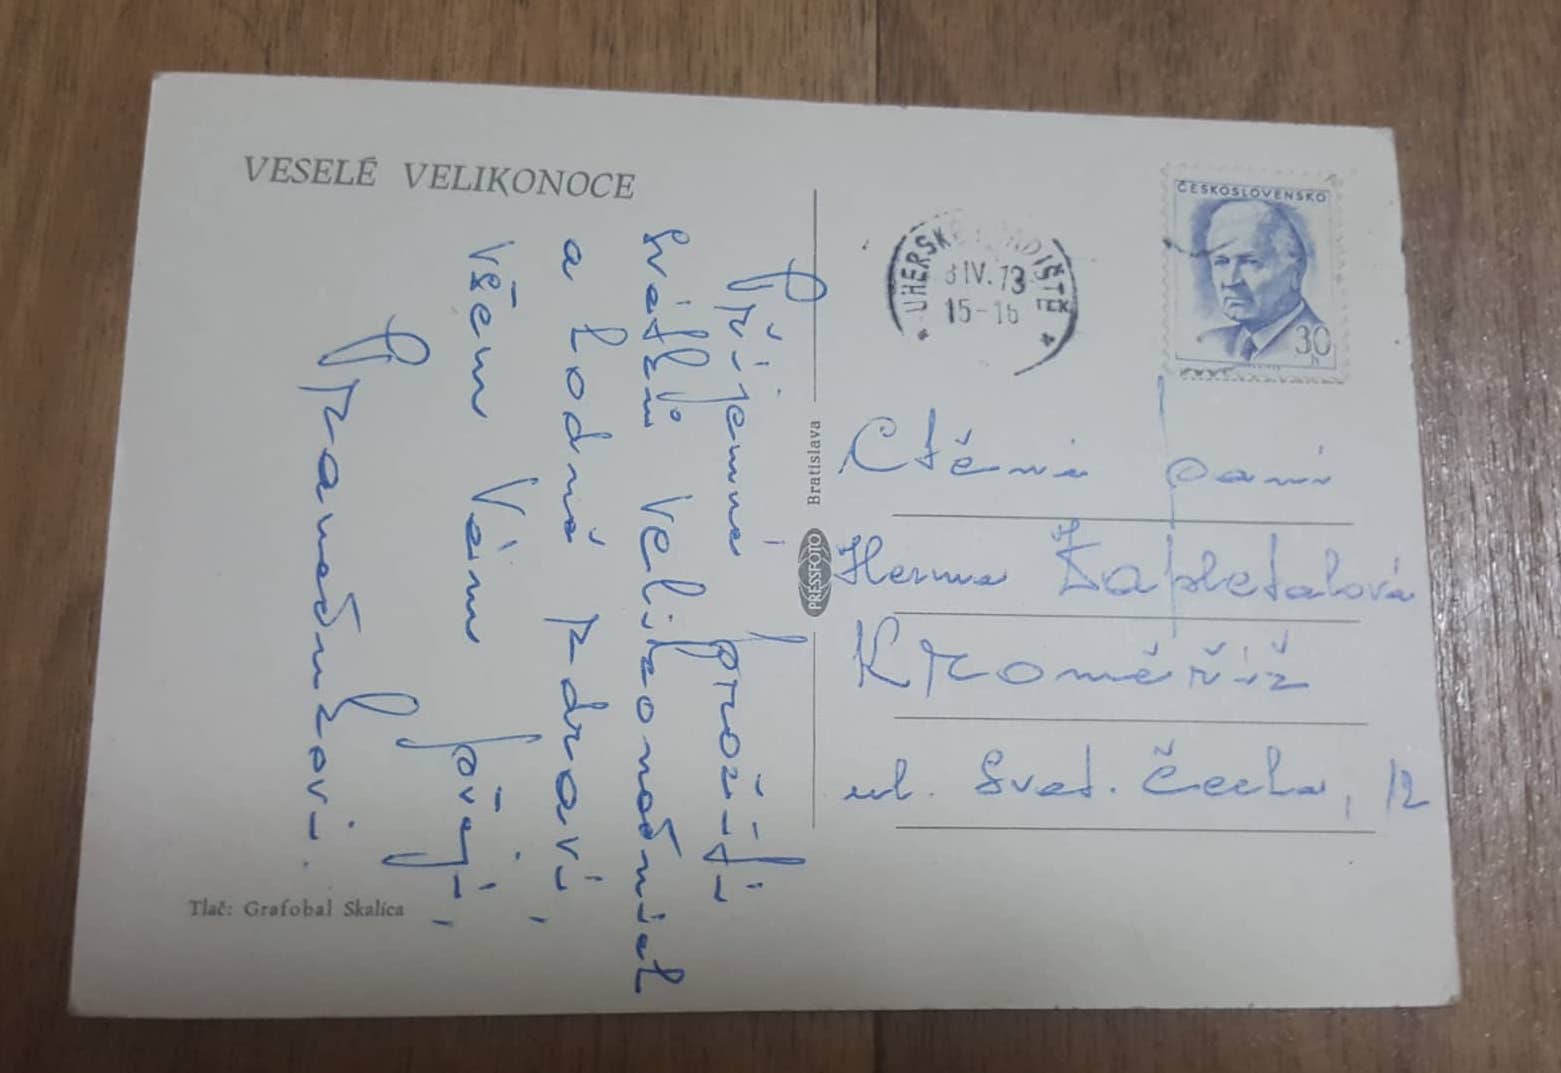 VESELÉ VELIKONOCE
Příjemné prožití
svátků Velikonočních
a hodně zdraví,
všem Vám přejí,
Tlač: Grafobal Skalica
Bratislava
PRESSFOTO
UHERSKÉ HRADIŠTĚ
IV. 73
15-16
ČESKOSLOVENSKO
30
h
Ctěná paní
Herma Zapletalová
Kroměříž
ul. Svat. Čecha, 12